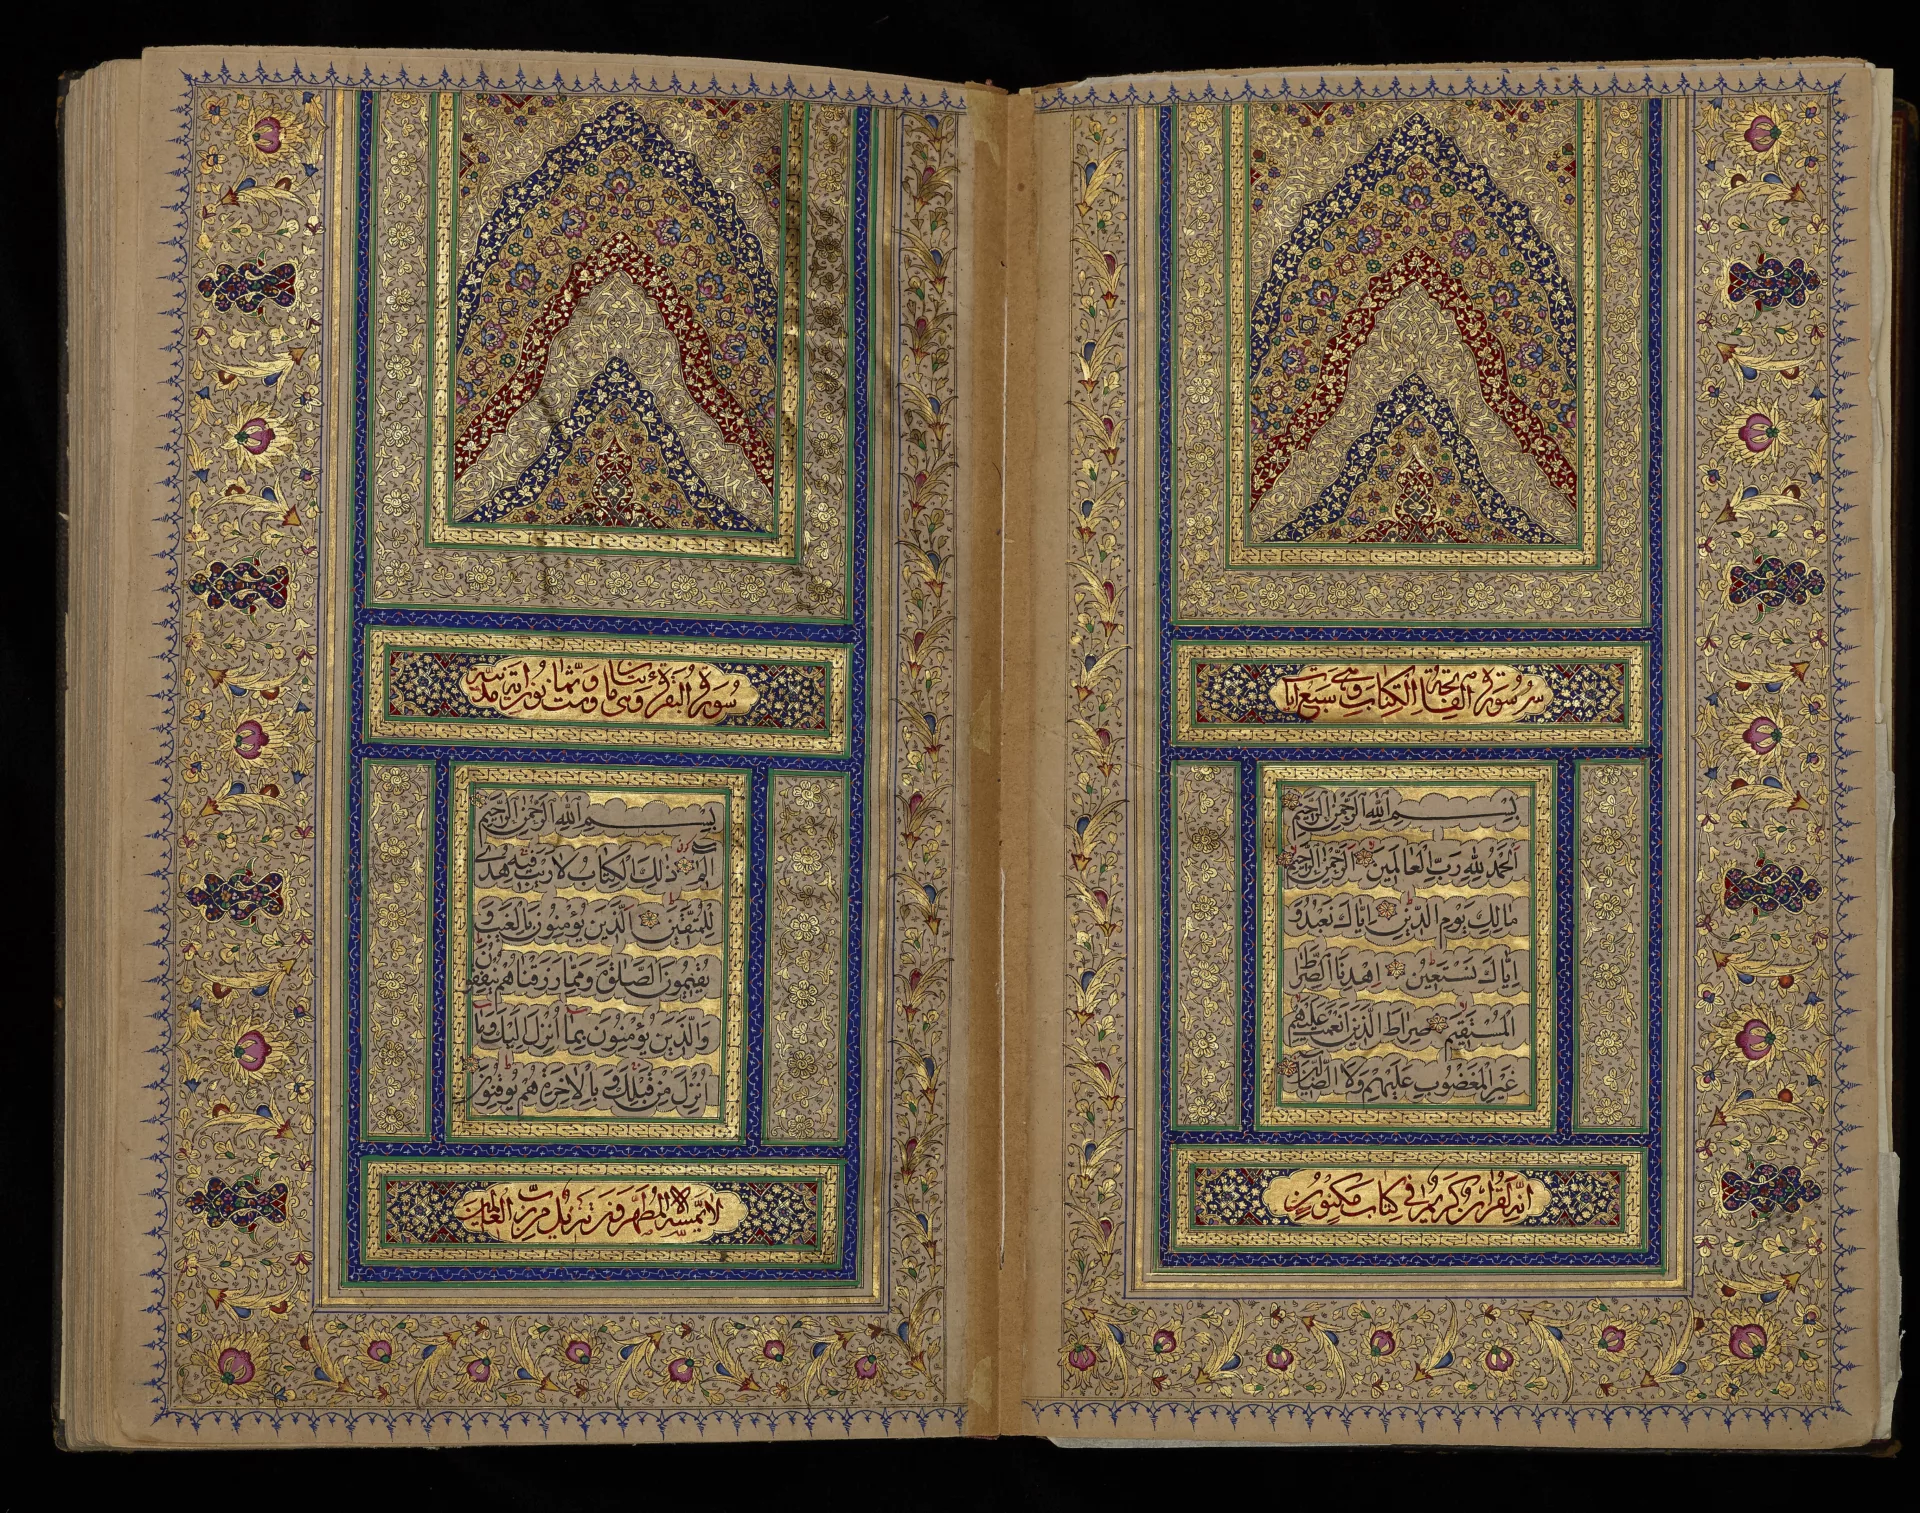 سورة الفاتحة الكتاب وهي سبع ايات
بسم الله الرحمن الرحيم
الحمد لله رب العالمين الرحمن الرحيم
مالك يوم الدين اياك نعبد و
اياك نستعين اهدنا الصراط
المستقيم صراط الذين انعمت عليهم
غير المغضوب عليهم ولا الضالين
انه لقران كريم في كتاب مكنون
سورة البقرة وهي مائتان وست وثمانون اية مدنية
بسم الله الرحمن الرحيم
الم ذلك الكتاب لا ريب فيه هدى
للمتقين الذين يؤمنون بالغيب و
يقيمون الصلوة ومما رزقناهم ينفقون
والذين يؤمنون بما انزل اليك وما
انزل من قبلك وبالاخرة هم يوقنون
لا يمسه الا المطهرون تنزيل من رب العالمين